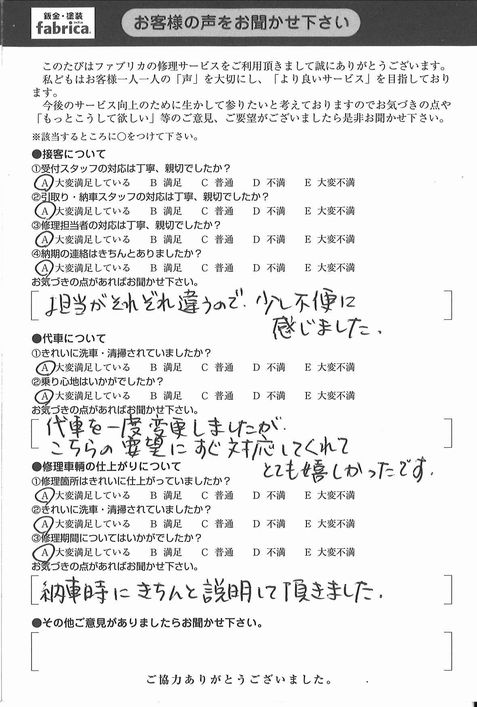 鈑金・塗装
fabrica.
お客様の声をお聞かせ下さい
このたびはファブリカの修理サービスをご利用頂きまして誠にありがとうございます。
私どもはお客様一人一人の「声」を大切にし、「より良いサービス」を目指しており
ます。
今後のサービス向上のために生かして参りたいと考えておりますのでお気づきの点や
「もっとこうして欲しい」等のご意見、ご要望がございましたら是非お聞かせ下さい。
※該当するところに○をつけて下さい。
●接客について
①受付スタッフの対応は丁寧、親切でしたか？
A 大変満足している B 満足 C 普通 D 不満 E 大変不満
②引取り・納車スタッフの対応は丁寧、親切でしたか？
A 大変満足している B 満足 C 普通 D 不満 E 大変不満
③修理担当者の対応は丁寧、親切でしたか？
A 大変満足している B 満足 C 普通 D 不満 E 大変不満
④納期の連絡はきちんとありましたか？
A 大変満足している B 満足 C 普通 D 不満 E 大変不満
お気づきの点があればお聞かせ下さい。
担当がそれぞれ違うので、少し不便に
感じました。
●代車について
①きれいに洗車・清掃されていましたか？
A 大変満足している B 満足 C 普通 D 不満 E 大変不満
②乗り心地はいかがでしたか？
A 大変満足している B 満足 C 普通 D 不満 E 大変不満
お気づきの点があればお聞かせ下さい。
代車を一度変更しましたが、
こちらの要望にすぐ対応してくれて
とても嬉しかったです。
●修理車輌の仕上がりについて
①修理箇所はきれいに仕上がっていましたか？
A 大変満足している B 満足 C 普通 D 不満 E 大変不満
②きれいに洗車・清掃されていましたか？
A 大変満足している B 満足 C 普通 D 不満 E 大変不満
③修理期間についてはいかがでしたか？
A 大変満足している B 満足 C 普通 D 不満 E 大変不満
お気づきの点があればお聞かせ下さい。
納車時にきちんと説明して頂きました。
●その他ご意見がありましたらお聞かせ下さい。
ご協力ありがとうございました。